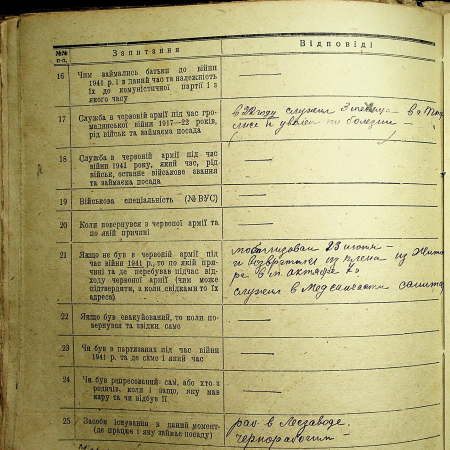 №№ п-п.
Запитання
Відповіді
16
Чим займались батьки до війни
1941 р. і в даний час та належність
їх до комуністичної партії і з
якого часу
17
Служба в червоній армії під час гро-
мадянської війни 1917—22 років,
рід військ та займаєма посада
в 22 году служил 3 месяца
и уволен по болезни
18
Служба в червоній армії під час
війни 1941 року, який час, рід
військ, останнє військове звання
та займаєма посада
19
Військова спеціальність (№ ВУС)
20
Коли повернувся з червоної армії та
по якій причині
21
Якщо не був в червоній армії під
час війни 1941 р. то по якій при-
чині та де перебував підчас від-
ходу червоної армії (чим може
підтвердити, а коли свідками то їх
адреса)
мобилизован 23 июня
и возвратился из плена из Жито
в м. октябре
служил в Медсанчасти санита
22
Якщо був евакуйований, то коли по-
вернувся та звідки саме
23
Чи був в партизанах під час війни
1941 р. та де саме і який час
24
Чи був репресований сам, або хто з
родичів, коли і защо, яку мав
кару та чи відбув її
25
Засоби існування в даний момент-
(де працює і яку займає посаду)
раб в Лесзаводе.
Чернорабочим